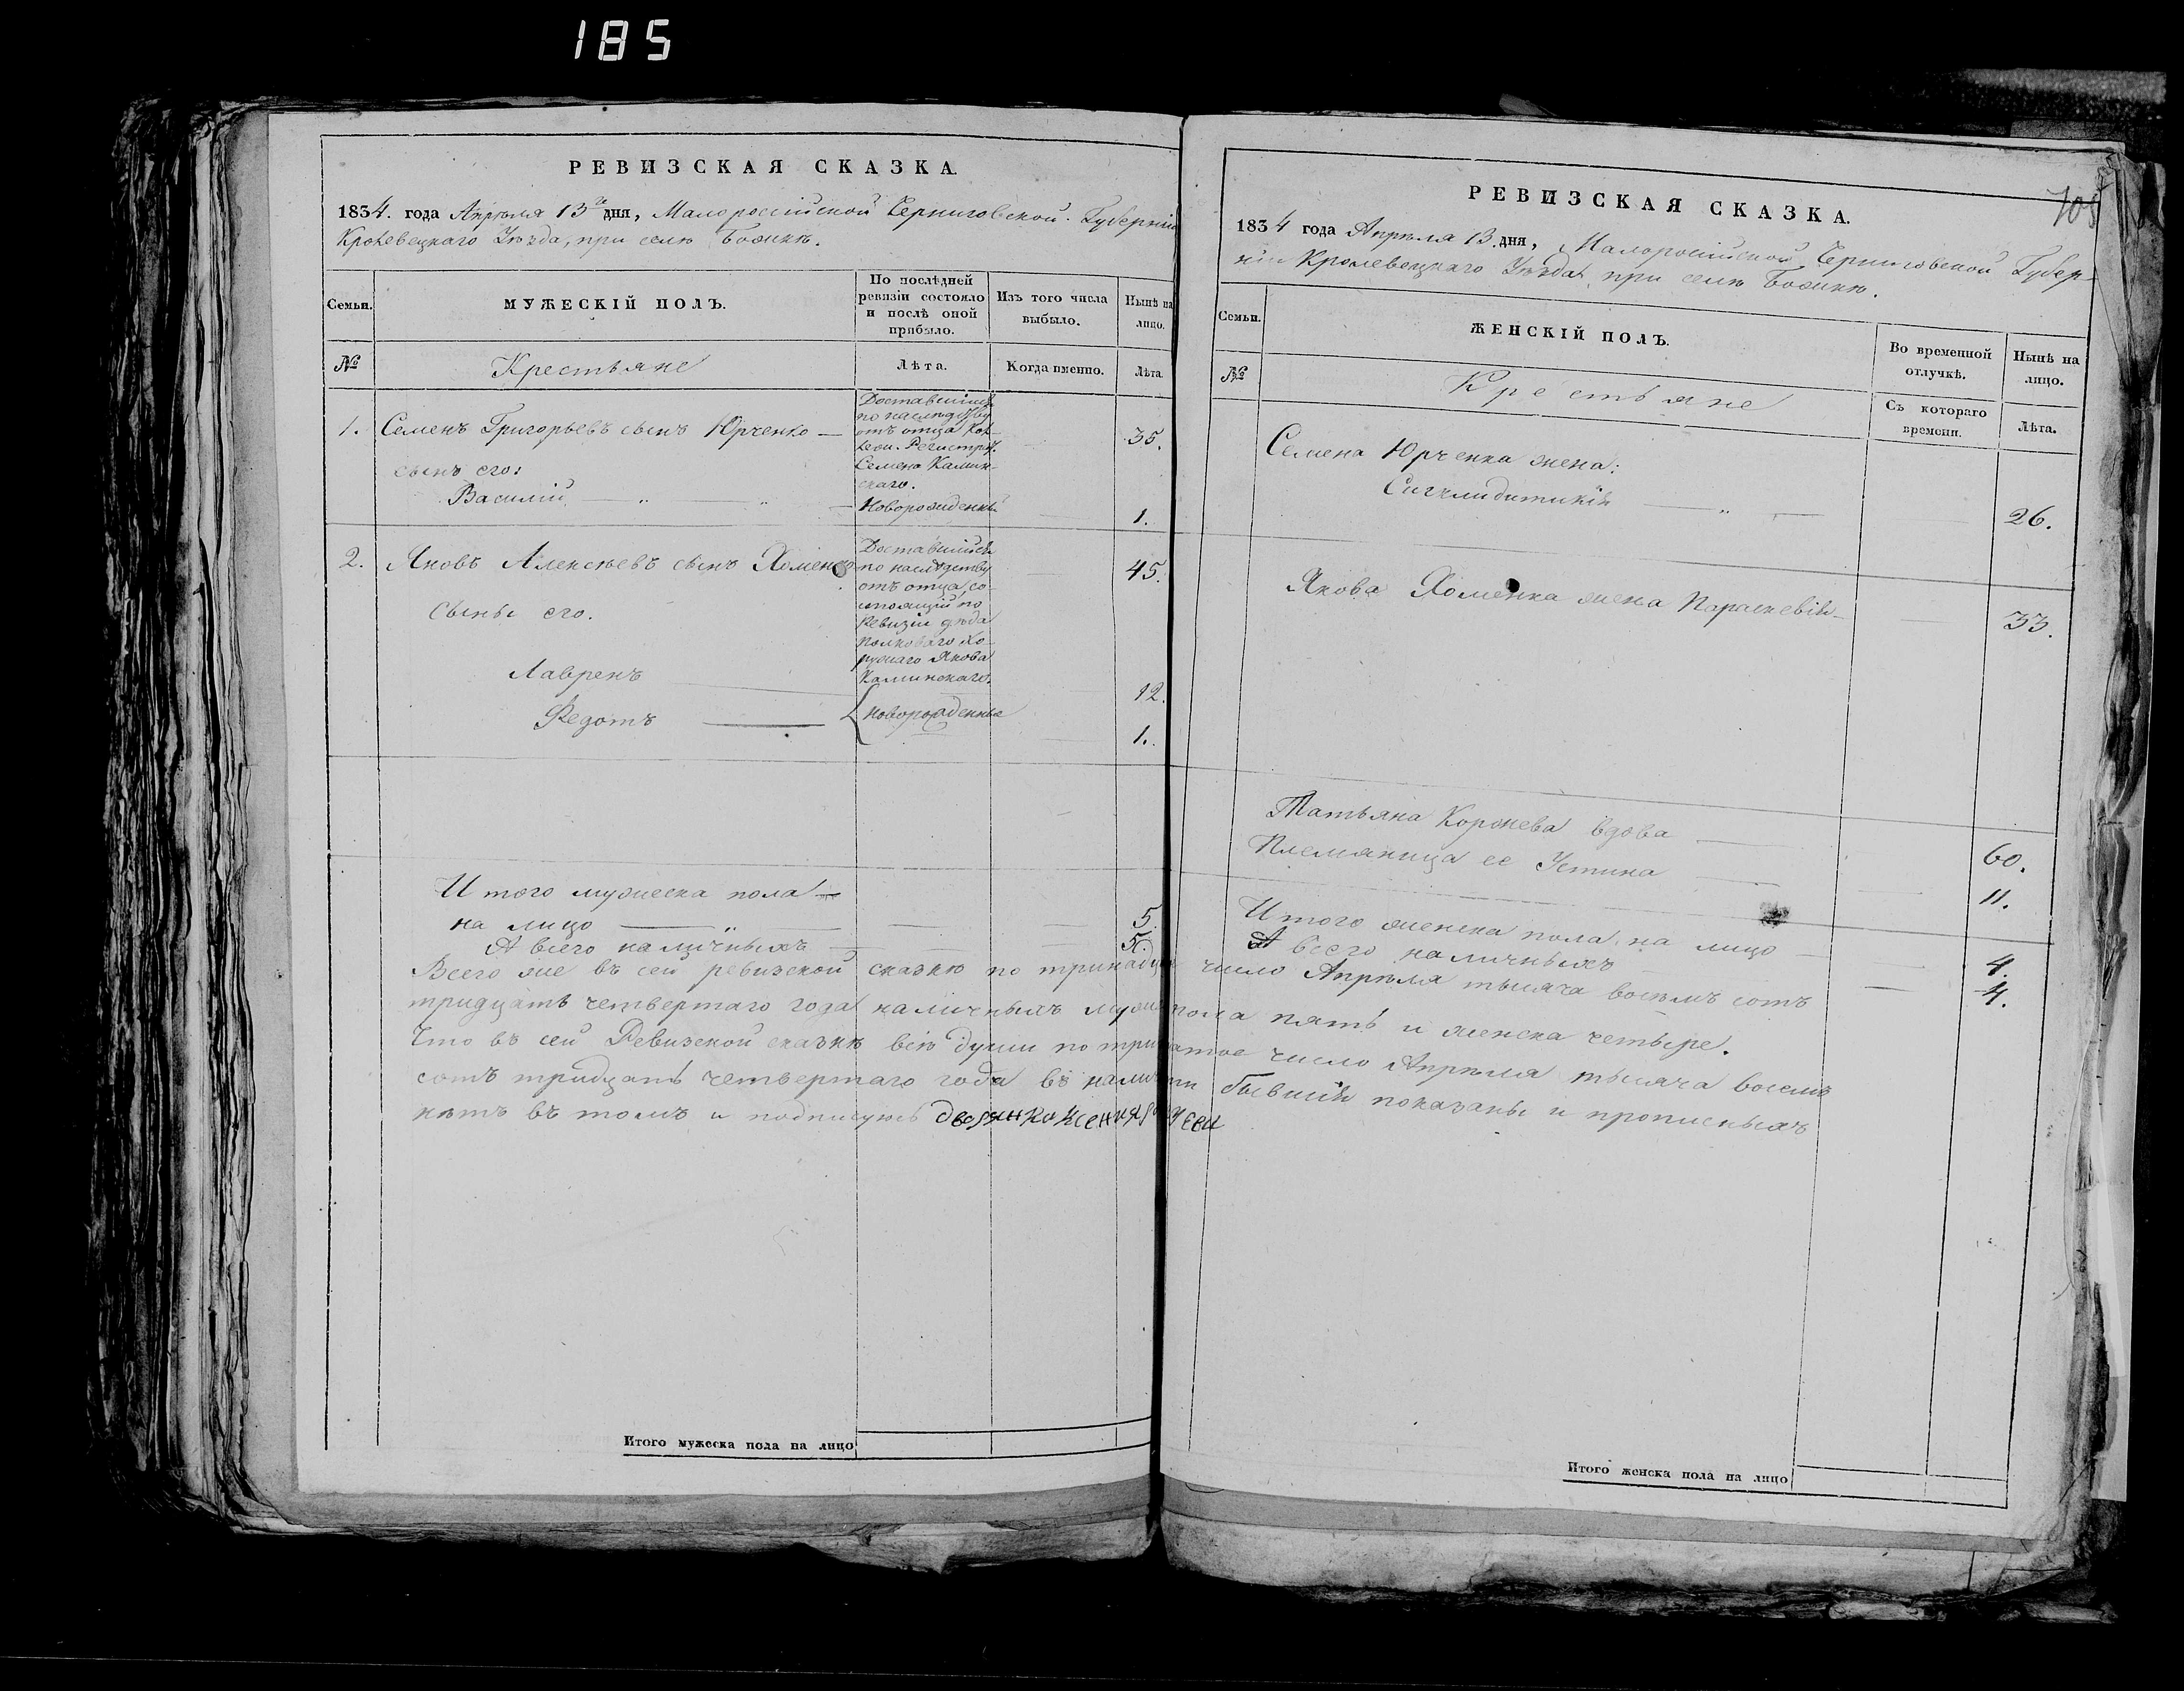 185
РЕВИЗСКАЯ СКАЗКА.
1834. года Апрѣля 13го дня, Малороссійской Черниговской Губерніи
Кролевецкаго Уѣзда, при селѣ
Семьи.
МУЖЕСКІЙ ПОЛЪ.
По послѣдней
ревизіи состояло
и послѣ оной
прибыло.
Изъ того числа
выбыло.
Нынѣ на
лицо.
№
Крестьяне
Лѣта.
Когда именно.
Лѣта.
1. Семенъ Григорьевъ сынъ Юрченко — 35.
Доставшійся
по наслѣдству
отъ отца Кол-
леж. Регистра.
Семена Камин-
скаго.
сынъ его:
Василій — " — " — Новорожденный — 1.
2. Яковъ Алексѣевъ сынъ Хоменко 45.
Доставшійся
по наслѣдству
отъ отца, со-
стоящій по
Ревизіи дѣда
Полковаго Хо-
ружаго Якова
Каминскаго.
Сыны его.
Лавренъ — 12.
Федотъ — { новорожденные — 1.
Итого мужеска пола —
на лицо — " — 5.
А всего наличныхъ — 5.
Итого мужеска пола на лицо
РЕВИЗСКАЯ СКАЗКА.
705
1834 года Апрѣля 13. дня, Малоросійской Черниговской Губер-
ніи Кролевецкаго Уѣзда, при селѣ
Семьи.
ЖЕНСКІЙ ПОЛЪ.
Во временной
отлучкѣ.
Нынѣ на
лицо.
№
Крестьяне
Съ котораго
времени.
Лѣта.
Семена Юрченка жена:
— " — 26.
Якова Хоменка жена Параскевія — 33.
Татьяна Коржева вдова — 60.
Племяница ее Устина — 11.
Итого женска пола на лицо — 4.
А всего наличныхъ — 4.
Всего же въ сей ревизской сказкѣ по тринадца число Апрѣля тысяча восемь сотъ
тридцать четвертаго года наличныхъ муже пола пять и женска четыре.
Что въ сей Ревизской сказкѣ всѣ души по три атое число Апрѣля тысяча восемь
сотъ тридцать четвертаго года въ налич ти бывшія показаны и прописныхъ
нѣтъ въ томъ и подписуюсь дворянка Ксения
Итого женска пола на лицо